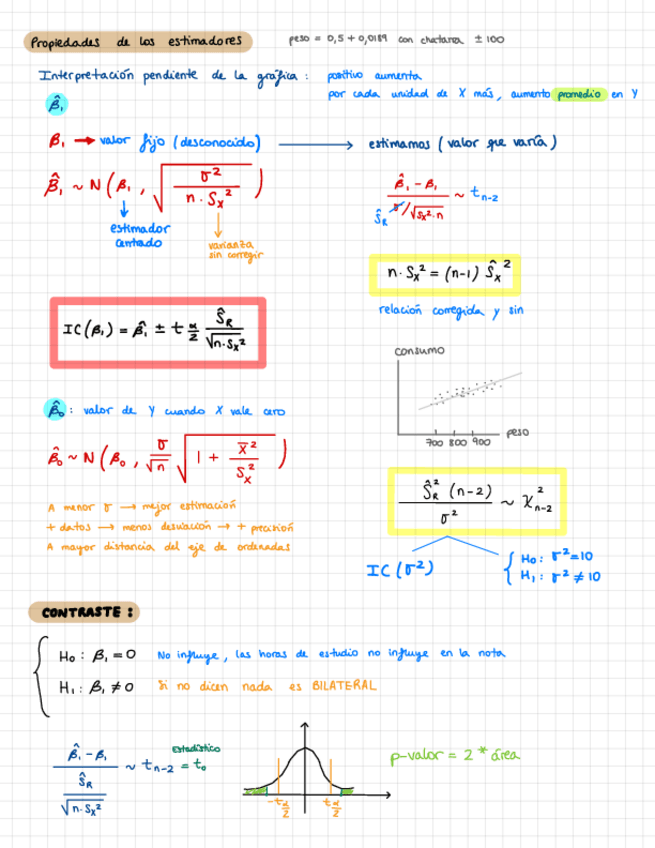 Propiedades de los estimadores
peso = 0,5 + 0,0189 con chatarra ± 100
Interpretación pendiente de la gráfica : positivo aumenta
por cada unidad de X más, aumento promedio en Y
β̂₁
β₁ → valor fijo (desconocido) → estimamos (valor que varía)
β̂₁ ~ N(β₁, √(σ² / n · Sx²))
estimador centrado
varianza sin corregir
(β̂₁ - β₁) / (ŜR σ/√(Sx² · n)) ~ t n-2
n · Sx² = (n-1) Ŝx²
relación corregida y sin
IC(β₁) = β̂₁ ± t α/2 ŜR / √(n · Sx²)
consumo
peso
700 800 900
β̂₀ : valor de Y cuando X vale cero
β̂₀ ~ N(β₀, σ/√n √(1 + X̄²/Sx²))
A menor σ → mejor estimación
+ datos → menos desviación → + precisión
A mayor distancia del eje de ordenadas
ŜR² (n-2) / σ² ~ χ² n-2
IC(σ²)
H₀ : σ² = 10
H₁ : σ² ≠ 10
CONTRASTE :
H₀ : β₁ = 0 No influye, las horas de estudio no influye en la nota
H₁ : β₁ ≠ 0 Si no dicen nada es BILATERAL
(β̂₁ - β₁) / (ŜR / √(n · Sx²)) ~ t n-2 = t₀
Estadístico
-t α/2 t α/2
p-valor = 2 * área